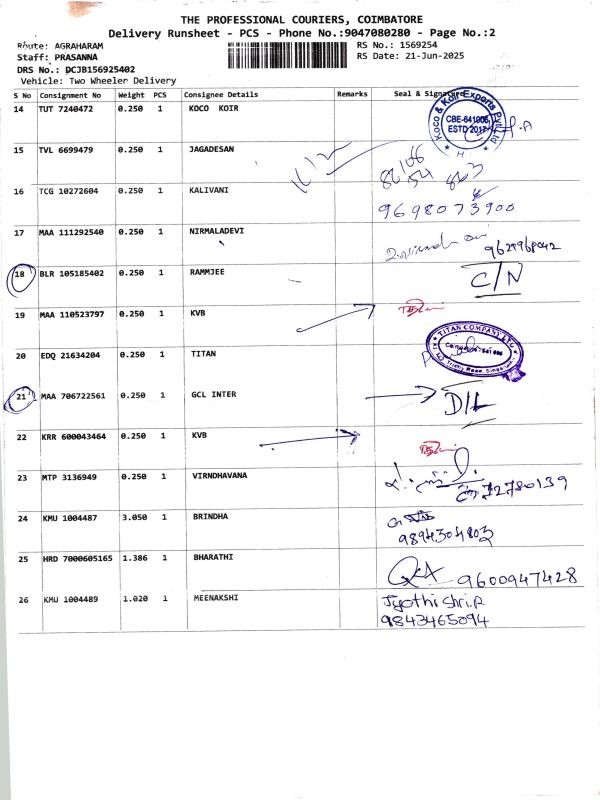 THE PROFESSIONAL COURIERS, COIMBATORE
Delivery Runsheet - PCS - Phone No.:9047080280 - Page No.:2
Route: AGRAHARAM RS No.: 1569254
Staff: PRASANNA RS Date: 21-Jun-2025
DRS No.: DCJB156925402
Vehicle: Two Wheeler Delivery
S No Consignment No Weight PCS Consignee Details Remarks Seal & Signature
14 TUT 7240472 0.250 1 KOCO KOIR
Koco & Koir Exports Pvt Ltd
CBE-641008
ESTD 2017
15 TVL 6699479 0.250 1 JAGADESAN
16 TCG 10272604 0.250 1 KALIVANI 9698073900
17 MAA 111292540 0.250 1 NIRMALADEVI
18 BLR 105185402 0.250 1 RAMMJEE C/N
19 MAA 110523797 0.250 1 KVB
20 EDQ 21634204 0.250 1 TITAN
TITAN COMPANY LTD
21 MAA 706722561 0.250 1 GCL INTER D/L
22 KRR 600043464 0.250 1 KVB
23 MTP 3136949 0.250 1 VIRNDHAVANA
24 KMU 1004487 3.050 1 BRINDHA
9894304803
25 HRD 7000605165 1.386 1 BHARATHI 9600947428
26 KMU 1004489 1.020 1 MEENAKSHI Jyothi Shri.R
9843465094